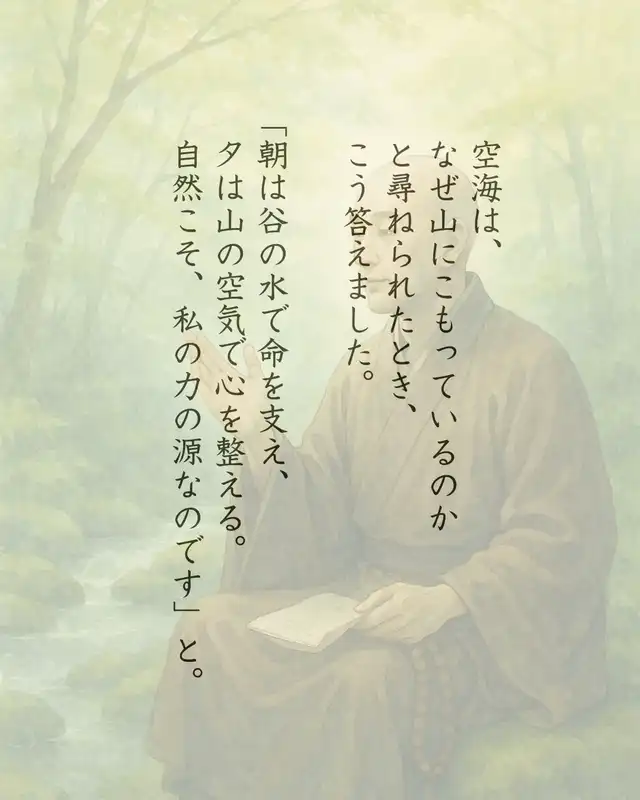 空海は、
なぜ山にこもっているのか
と尋ねられたとき、
こう答えました。
「朝は谷の水で命を支え、
夕は山の空気で心を整える。
自然こそ、私の力の源なのです」と。